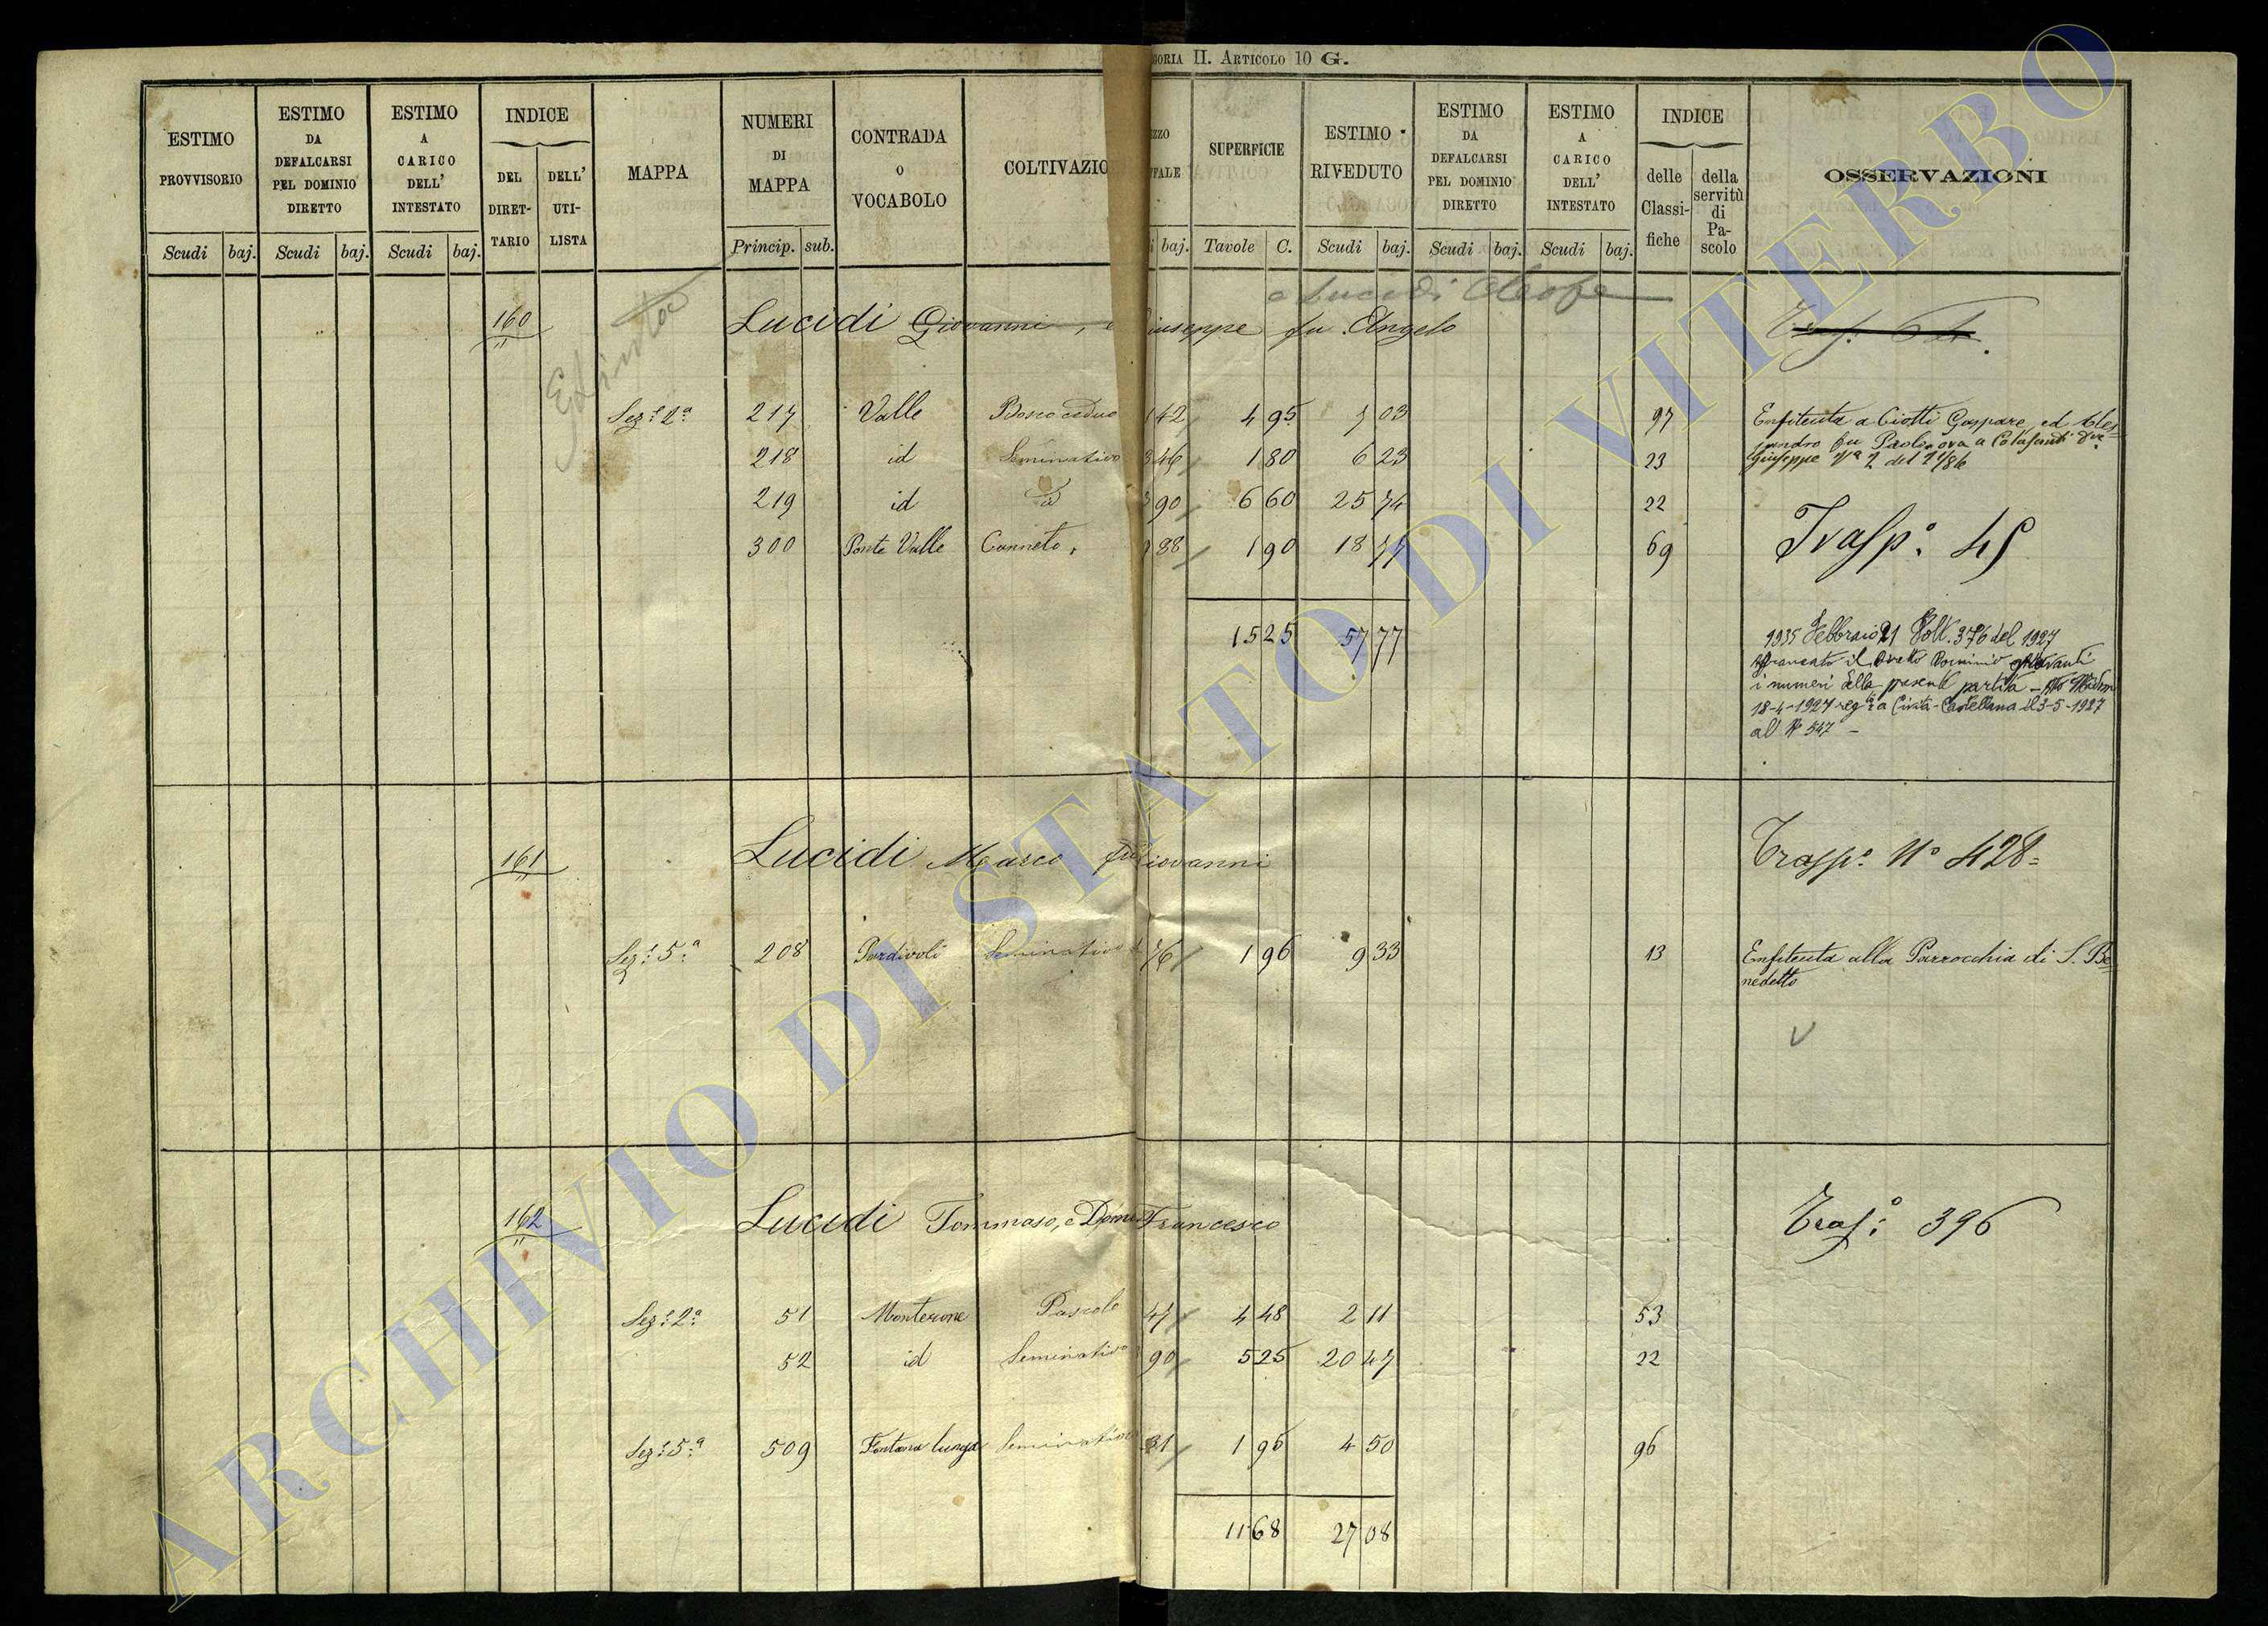 II. ARTICOLO 10 G.
ESTIMO PROVVISORIO
Scudi baj.
ESTIMO DA DEFALCARSI PEL DOMINIO DIRETTO
Scudi baj.
ESTIMO A CARICO DELL' INTESTATO
Scudi baj.
INDICE
DEL DIRET-TARIO
DELL' UTI-LISTA
MAPPA
NUMERI DI MAPPA
Princip. sub.
CONTRADA o VOCABOLO
COLTIVAZIO
baj.
SUPERFICIE
Tavole C.
ESTIMO RIVEDUTO
Scudi baj.
ESTIMO DA DEFALCARSI PEL DOMINIO DIRETTO
Scudi baj.
ESTIMO A CARICO DELL' INTESTATO
Scudi baj.
INDICE
delle Classi-fiche
della servitù di Pa-scolo
OSSERVAZIONI
e Lucidi Cleofe
160 Lucidi Giovanni, e iuseppe fu Angelo
Sez.e 2a 217 Valle Bosco ceduo 42 4 95 7 03 97
218 id Seminativo 46 1 80 6 23 23
219 id id 90 6 60 25 74 22
300 Ponte Valle Canneto 88 1 90 18 77 69
15 25 57 77
Enfiteuta a Ciotti Gaspare, ed Ales=
sandro fu Paolo ora a
Giuseppe
Trasp.o 45
1935 Febbraio 21 Volt. 376 del 1927
Affrancato il diretto Dominio
i numeri della presente partita
18-4-1927 reg. a Civita-Castellana il 3-5-1927
al No 547 -
161 Lucidi Marco fu iovanni
Trasp.o No 428=
Sez.e 5.a 208 Pardivoli Seminativo 76 1 96 9 33 13
Enfiteuta alla Parrocchia di S. Be=
nedetto
V
162 Lucidi Tommaso, e Dome Francesco
Tras.o 396
Sez.e 2a 51 Monterone Pascolo 47 4 48 2 11 53
52 id Seminativo 90 5 25 20 47 22
Sez.e 5.a 509 Fontana lunga Seminativo 31 1 95 4 50 96
11 68 27 08
ARCHIVIO DI STATO DI VITERBO